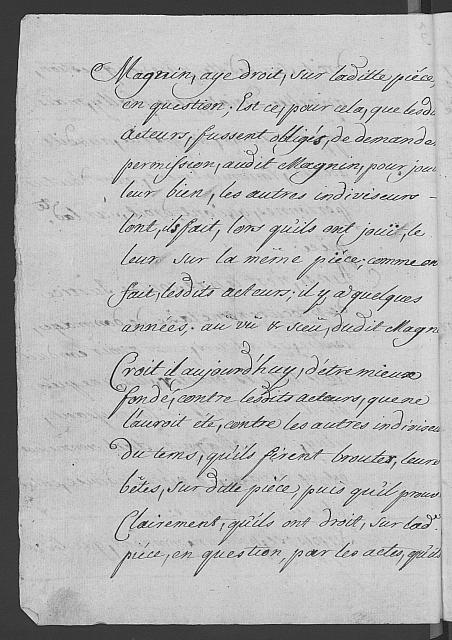 Magnin, aye droit, sur laditte piéce,
en question; Est ce, pour cela, que lesdi
acteurs, fussent obligés, de demande
permission, audit Magnin, pour jou
leur bien, les autres indiviseurs
lont, ils fait, lors qu'ils ont jouït, le
leur sur la même piéce; comme on
fait, lesdits acteurs; il y a quelques
années. au vû & sceu, dudit Magn
Croit il aujourd'huy, d'être mieux
fondé, contre lesdits acteurs, que ne
l'auroit eté, contre les autres indiviseu
du tems, qu'ils firent brouter, leurs
bêtes, sur ditte piéce; puis qu'il prouv
Clairement, qu'ils ont droit, sur lad.e
piéce, en question, par les actes, qu'ils